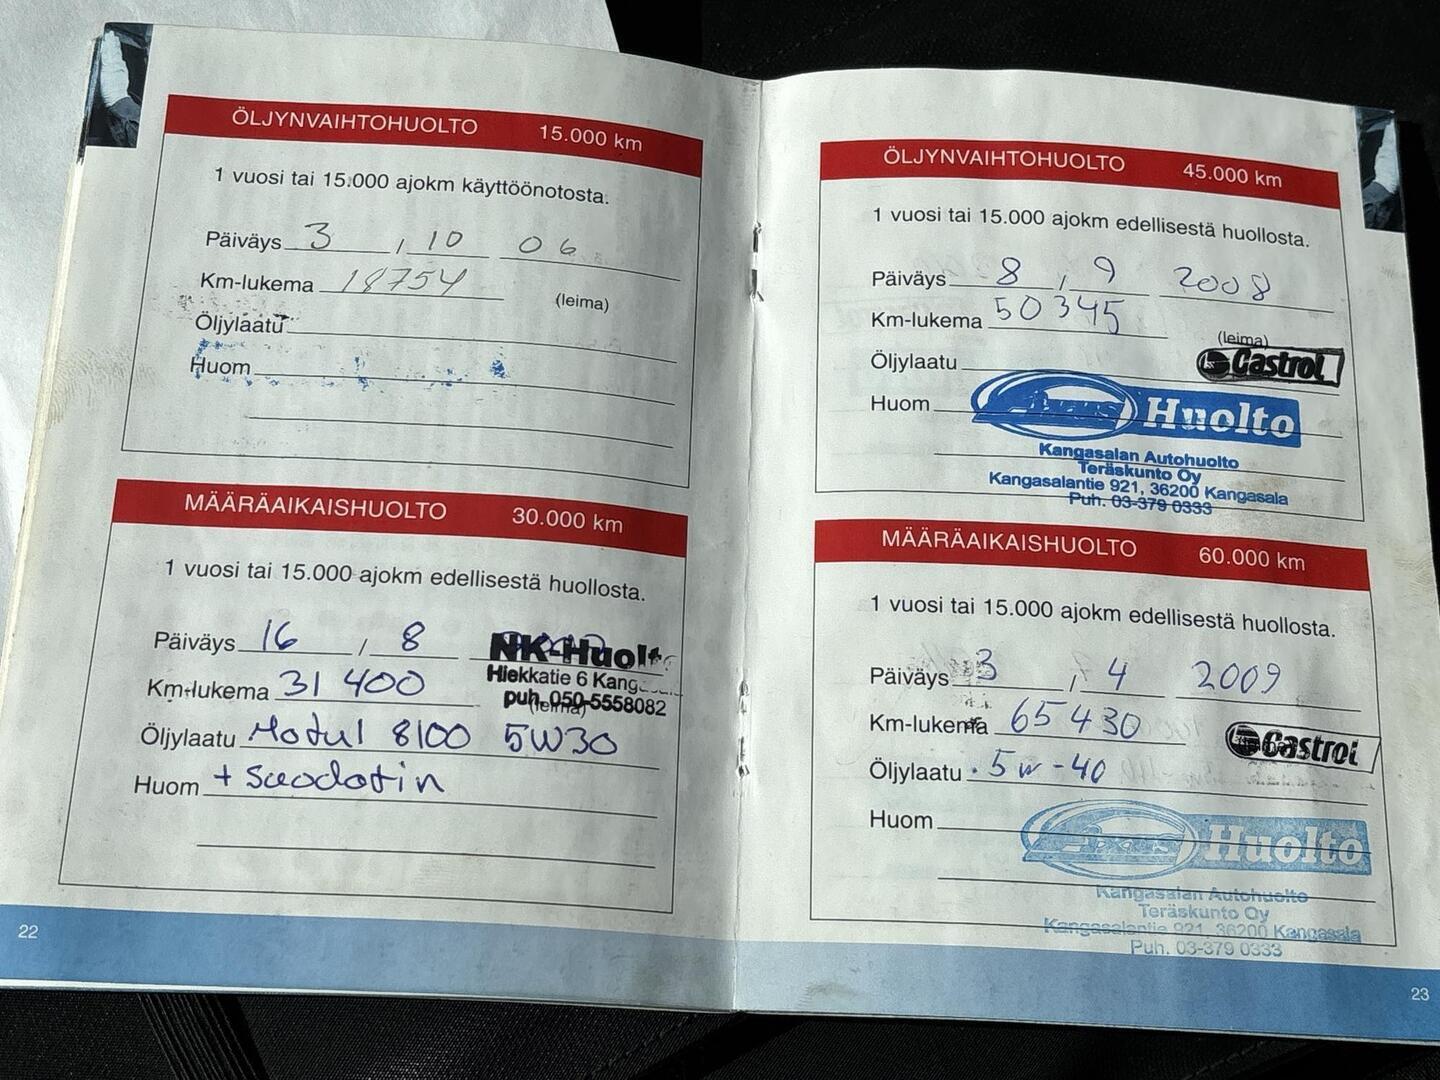 ÖLJYNVAIHTOHUOLTO 15.000 km
1 vuosi tai 15.000 ajokm käyttöönotosta.
Päiväys 3 , 10 06
Km-lukema 18754
(leima)
Öljylaatu
Huom
MÄÄRÄAIKAISHUOLTO 30.000 km
1 vuosi tai 15.000 ajokm edellisestä huollosta.
Päiväys 16 , 8
NK-Huolt
Km-lukema 31 400
Hiekkatie 6 Kang
puh. 050-5558082
(leima)
Öljylaatu Motul 8100 5W30
Huom + suodatin
22
ÖLJYNVAIHTOHUOLTO 45.000 km
1 vuosi tai 15.000 ajokm edellisestä huollosta.
Päiväys 8 , 9 2008
Km-lukema 50345
(leima)
Öljylaatu
Castrol
Huom
Huolto
Kangasalan Autohuolto
Teräskunto Oy
Kangasalantie 921, 36200 Kangasala
Puh. 03-379 0333
MÄÄRÄAIKAISHUOLTO 60.000 km
1 vuosi tai 15.000 ajokm edellisestä huollosta.
Päiväys 3 , 4 2009
Km-lukema 65430
Castrol
Öljylaatu 5w-40
Huom
Huolto
Kangasalan Autohuolto
Teräskunto Oy
Kangasalantie 921, 36200 Kangasala
Puh. 03-379 0333
23